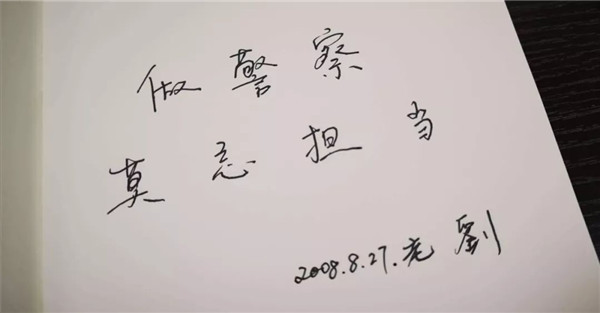 做警察
莫忘担当
2008.8.27.老劉